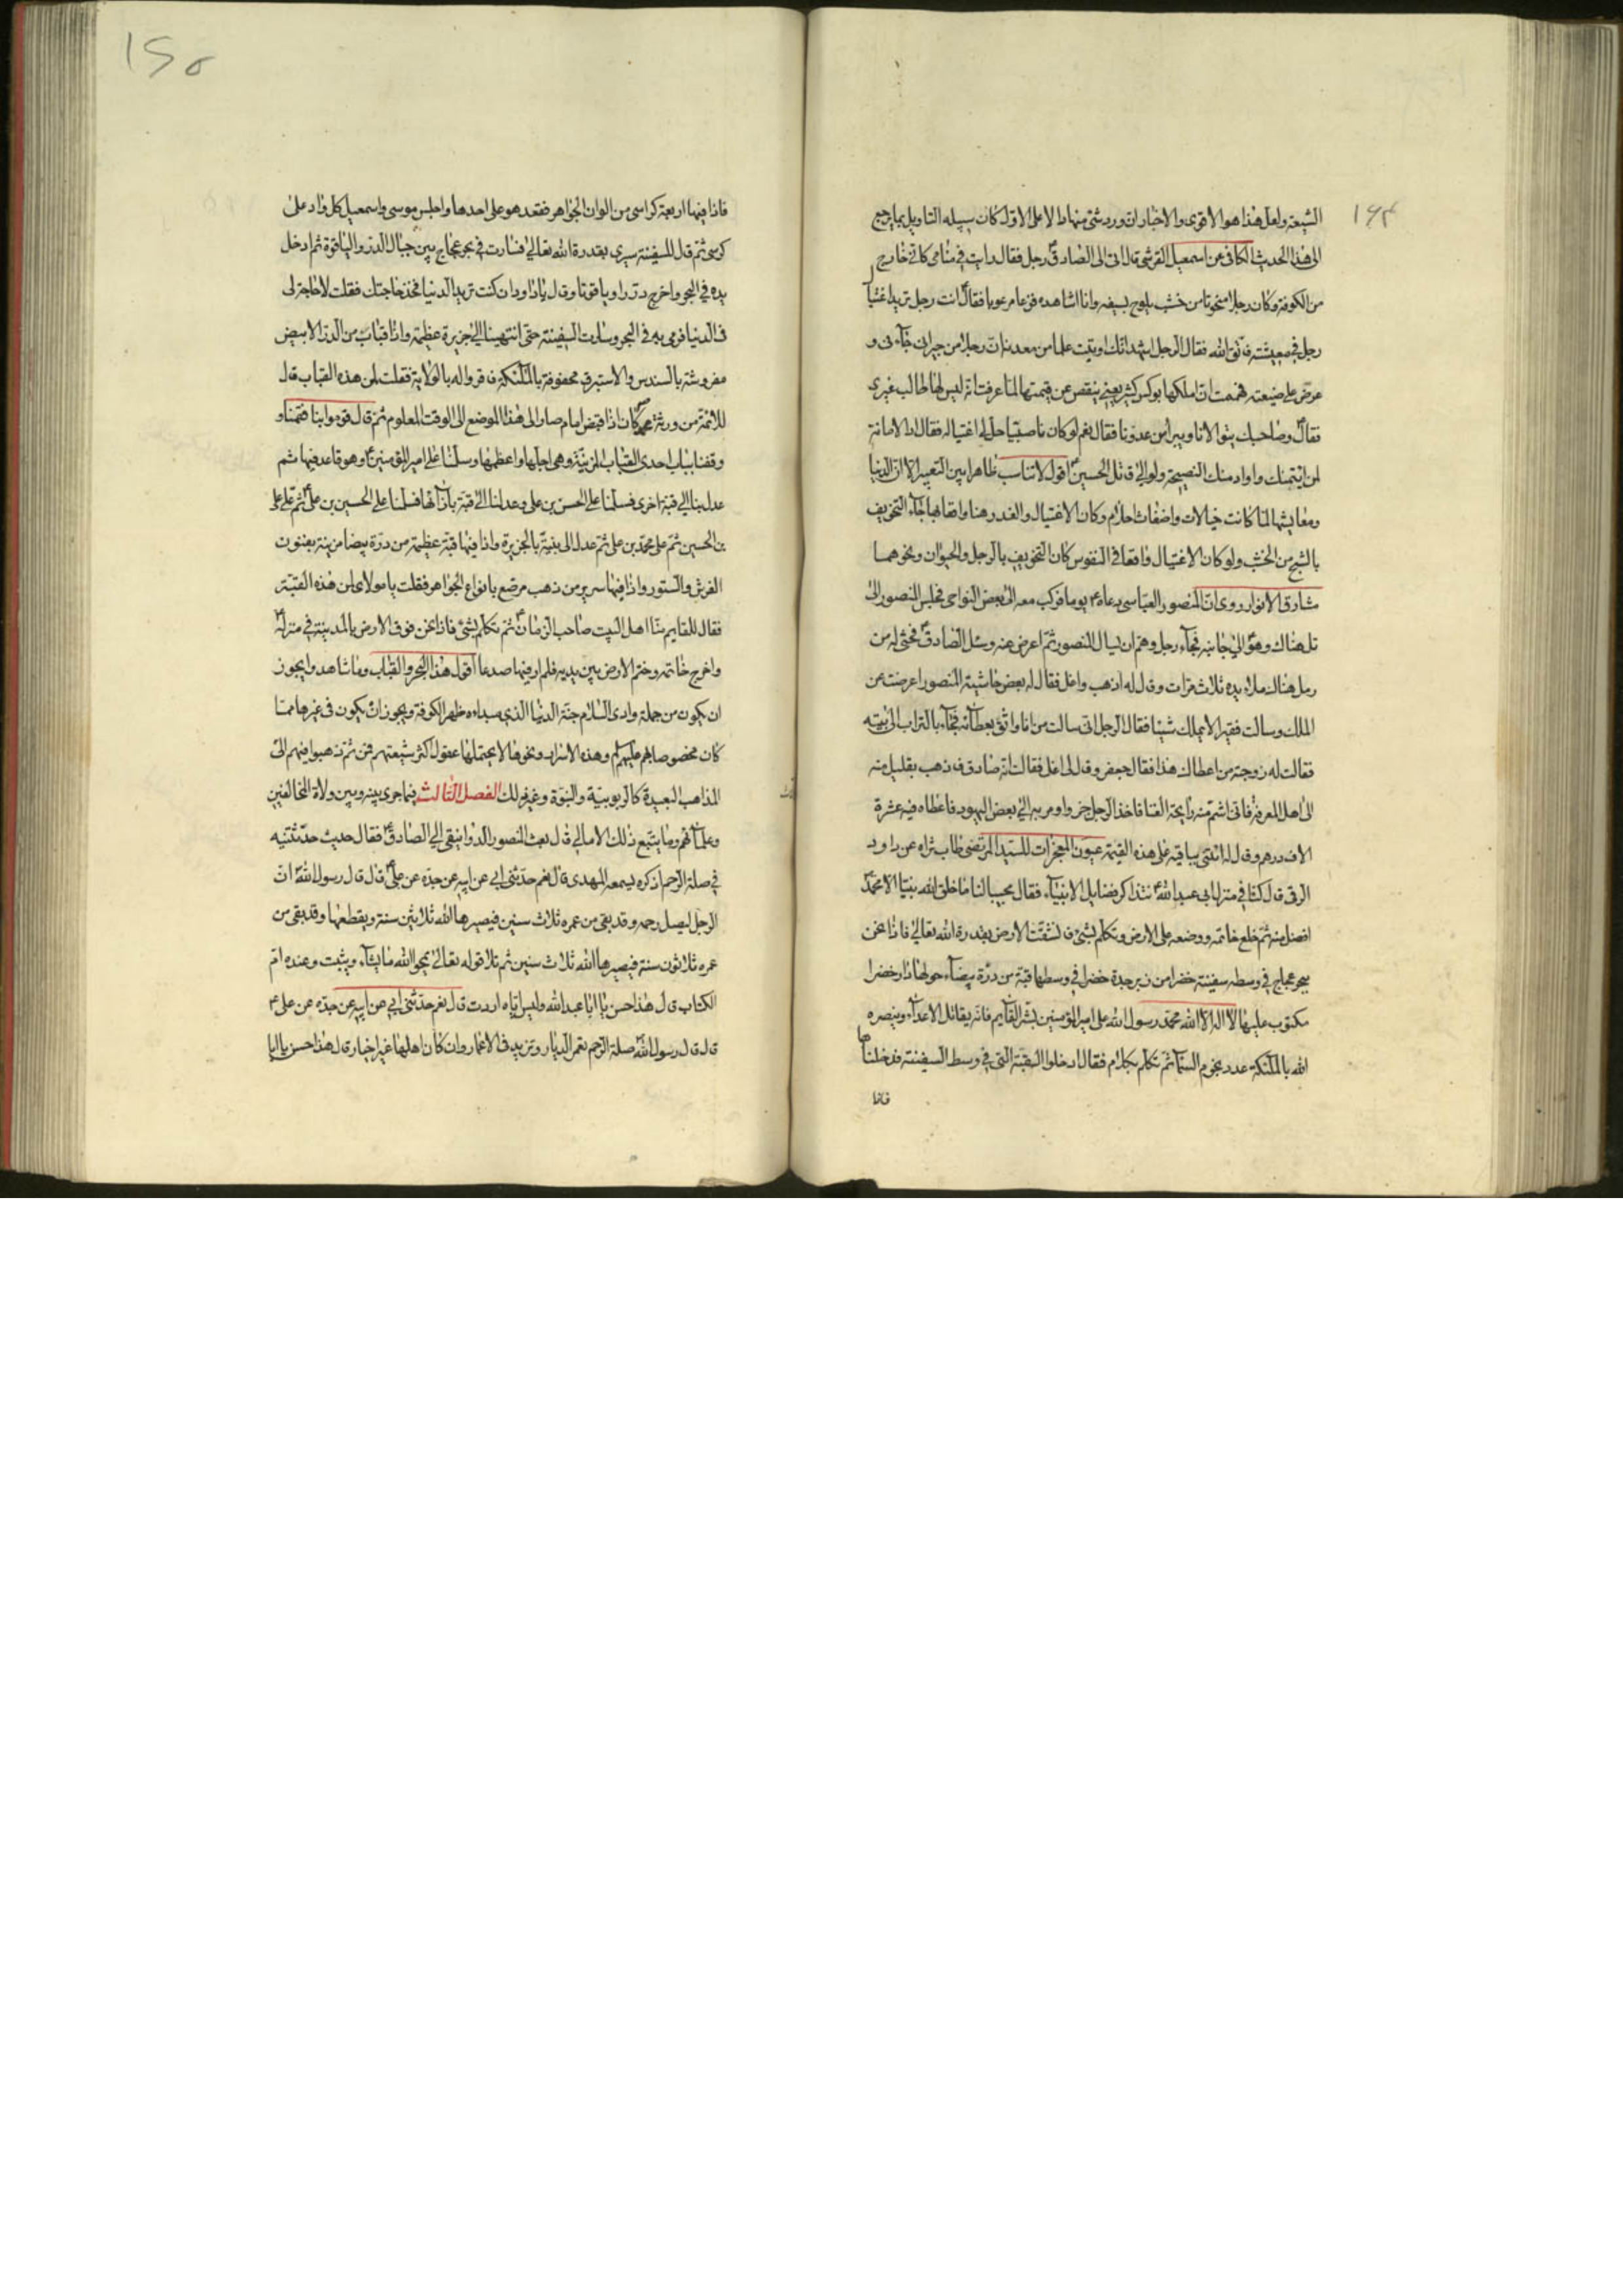 ١٦٤
الشيعة ولعل هذا هو الاقوى والاخبار ان ورد شئ منها دالا على الاول كان سبيله التاويل بما يرجع
الى هذا الحديث الكافى عن اسمعيل القرشى قال اتى الى الصادق ع رجل فقال رايت فى منامى كانى خارج
من الكوفة وكان رجلا منحوتا من خشب يلوح بسيفه وانا اشاهده فزعا مرعوبا فقال ع انت رجل تريد اغتيال
رجل فى معيشته فاتق الله فقال الرجل اشهد انك اوتيت علما من معدنه ان رجلا من جيرانى جآءنى و
عرض على ضيعته فهممت ان املكها بوكس كثير يعنى ينقص عن قيمتها لما عرفت انه ليس لها طالب غيرى
فقال ع وصاحبك يتوالانا ويبرأ من عدونا فقال نعم لو كان ناصبيا حل لى اغتياله فقال اد الامانة
لمن ائتمنك واراد منك النصيحة ولو الى قاتل الحسين ع اقول لا تناسب ظاهرا بين التعبير الا ان الدنيا
ومعايشها لما كانت خيالات واضغاث احلام وكان الاغتيال والغدر هنا واقعا فيها جآء التخويف
بالشبح من الخشب ولو كان الاغتيال واقعا فى النفوس كان التخويف بالرجل والحيوان ونحوهما
مشارق الانوار روى ان المنصور العباسى دعاه ع يوما فركب معه الى بعض النواحى فجلس المنصور الى
تل هناك وهو الى جانبه فجآء رجل وهم ان يسال المنصور ثم اعرض عنه وسئل الصادق ع فحثى له من
رمل هناك ملاء يده ثلاث مرات وقال له اذهب واغل فقال له بعض حاشية المنصور اعرضت عن
الملك وسالت فقيرا لا يملك شيئا فقال الرجل انى سالت من انا واثق بعطآئه فجآء بالتراب الى بيته
فقالت له زوجته من اعطاك هذا فقال جعفر وقال لى اغل فقالت انه صادق فاذهب بقليل منه
الى اهل المعرفة فانى اشم منه رايحة الغنا فاخذ الرجل جزوا ومر به الى بعض اليهود فاعطاه فيه عشرة
الاف درهم وقال له ائتنى بباقيه على هذه القيمة عيون المعجزات للسيد المرتضى طاب ثراه عن داود
الرقى قال كنا فى منزل ابى عبد الله ع نتذاكر فضايل الانبيآء فقال مجيبا لنا ما خلق الله نبيا الا ومحمد
افضل منه ثم خلع خاتمه ووضعه على الارض وتكلم بشئ فانشقت الارض بقدرة الله تعالى فاذا نحن
ببحر عجاج فى وسطه سفينة خضرا من زبرجدة خضرا فى وسطها قبة من درة بيضآء حولها دار خضرا
مكتوب عليها لا اله الا الله محمد رسول الله على امير المؤمنين بشر القآيم فانه يقاتل الاعدآء وينصره
الله بالملئكة عدد نجوم السمآء ثم تكلم بكلام فقال ادخلوا القبة التى فى وسط السفينة فدخلناها
فاذا
١٥٥
فاذا فيها اربعة كراسى من الوان الجواهر فقعد هو على احدها واجلس موسى واسمعيل كل واد على
كرسى ثم قال للسفينة سيرى بقدرة الله تعالى فسارت فى بحر عجاج بين جبال الدر واليا قوة ثم ادخل
يده فى البحر واخرج دررا وياقوتا وقال يا داود ان كنت تريد الدنيا فخذ حاجتك فقلت لا حاجة لى
فى الدنيا فرمى به فى البحر وسارت السفينة حتى انتهينا الى جزيرة عظيمة واذا قباب من الدر الابيض
مفروشة بالسندس والاستبرق محفوفة بالملئكة فاقروا له بالولاية فقلت لمن هذه القباب قال
للائمة من ورثة محمد كان اذا قبض امام صار الى هذا الموضع الى الوقت المعلوم ثم قال قوموا بنا فقمنا و
وقفنا بباب احدى القباب المزينة وهى اجلها واعظمها وسلمنا على امير المؤمنين ع وهو قاعد فيها ثم
عدل بنا الى قبة اخرى فسلمنا على الحسن بن على وعدلنا الى قبة بازآئها فسلمنا على الحسين بن على ع ثم على على
بن الحسين ثم على محمد بن على ثم عدل الى بنية بالجزيرة واذا فيها قبة عظيمة من درة بيضا مزينة بفنون
الفرش والستور واذا فيها سرير من ذهب مرصع بانواع الجواهر فقلت يا مولاى لمن هذه القبة
فقال للقايم منا اهل البيت صاحب الزمان ع ثم تكلم بشئ فاذا نحن فوق الارض بالمدينة فى منزله
واخرج خاتمه وختم الارض بين يديه فلم ار فيها صدعا اقول هذا البحر والقباب وما شاهدوا يجوز
ان يكون من جملة وادى السلام جنة الدنيا الذى مبداءه ظهر الكوفة ويجوز ان يكون فى غيرها مما
كان مخصوصا بهم عليهم لم وهذه الاسرار ونحوها لا يحتملها عقول اكثر شيعتهم فمن ثم ذهبوا فيهم الى
المذاهب البعيدة كالربوبية والنبوة وغير ذلك الفصل الثالث فيما جرى بينه وبين ولاة المخالفين
وعلمآئهم وما يتبع ذلك الامالى قال بعث المنصور الدوانيقى الى الصادق ع فقال حديث حدثتنيه
فى صلة الرحم اذكره يسمعه المهدى قال نعم حدثنى ابى عن ابيه عن جده عن على ع قال قال رسول الله ان
الرجل ليصل رحمه وقد بقى من عمره ثلاث سنين فيصيرها الله ثلاثين سنة ويقطعها وقد بقى من
عمره ثلاثون سنة فيصيرها الله ثلاث سنين ثم تلا قوله تعالى يمحو الله ما يشآء ويثبت وعنده ام
الكتاب قال هذا حسن يا ابا عبد الله وليس اياه اردت قال نعم حدثنى ابى عن ابيه عن جده عن على ع
قال قال رسول الله صلة الرحم تعمر الديار وتزيد فى الاعمار وان كان اهلها غير اخيار قال هذا حسن يا ابا